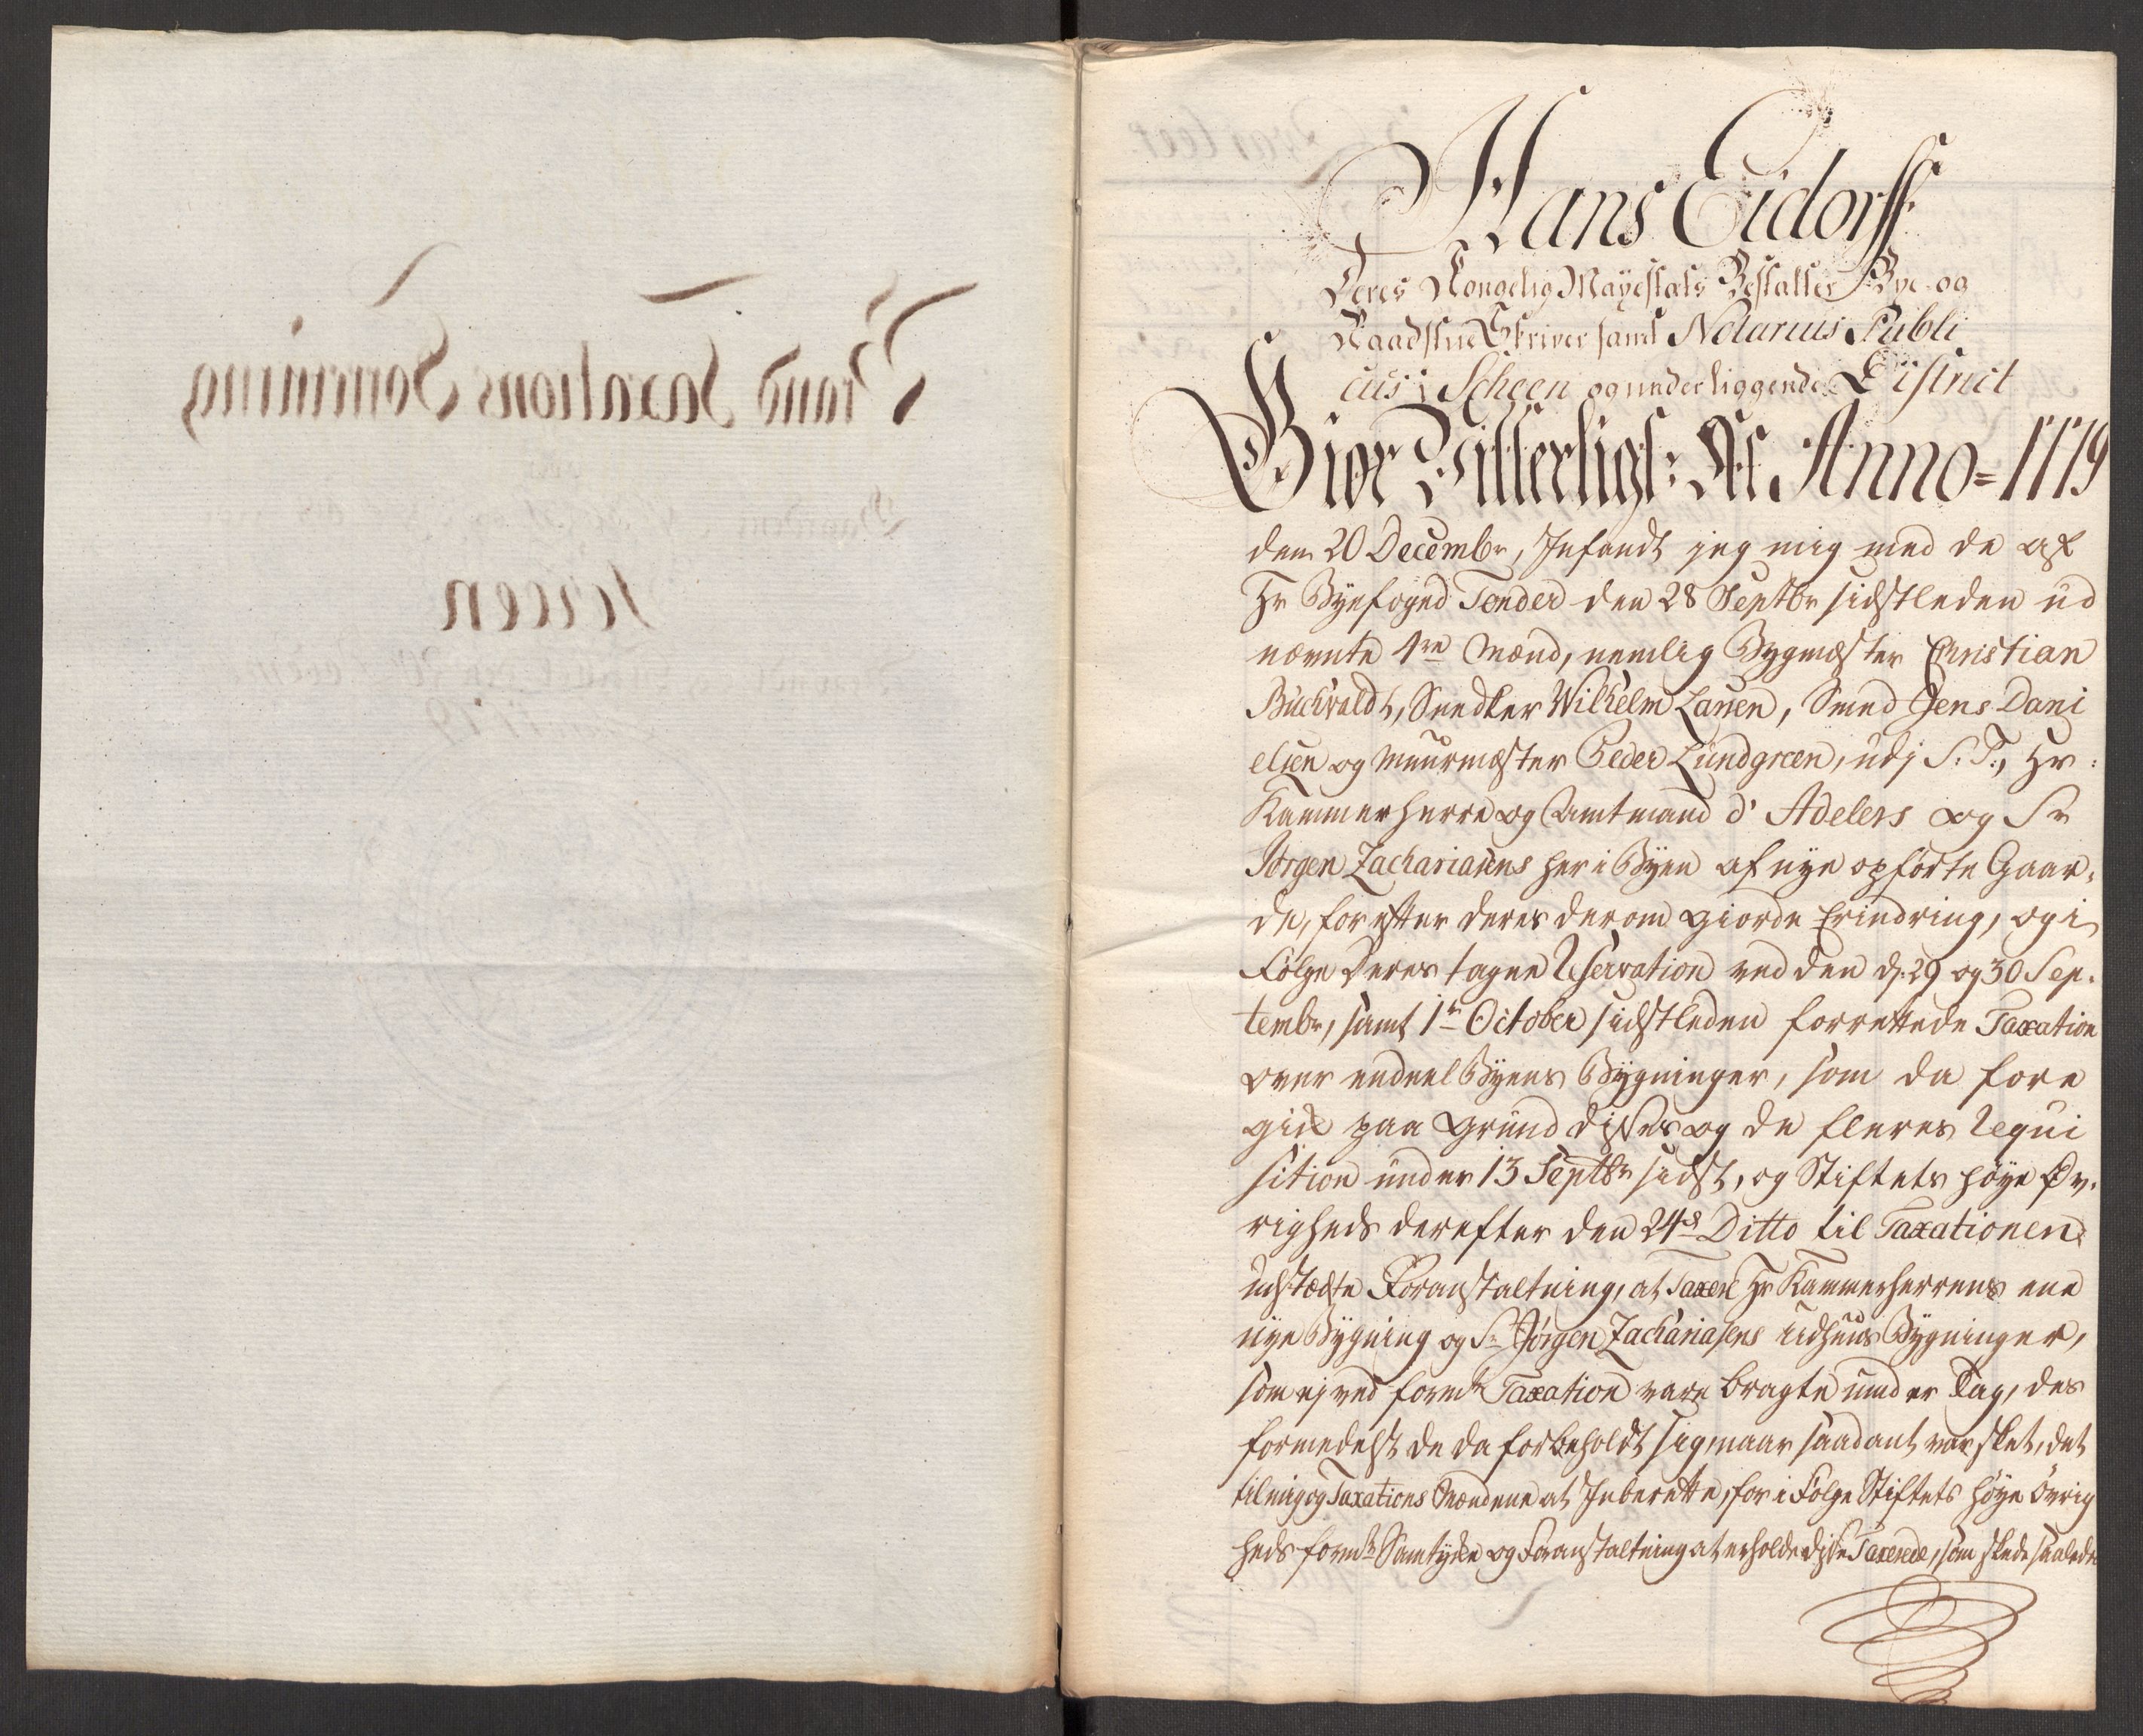 Hans Eidorff
Deres Kongelig Mayestæts Bestalter Bye- og
Raadstue Skriver samt Notarius Publi
cus i Scheen og underliggende District
Giør Vitterligt: At Anno = 1779
den 20 Decembr, Infandt jeg mig med de af
Hr Byefoged Tønder den 28 Septbr sidstleden ud
nævnte 4re Mænd, nemlig Bygmæster Christian
Buchvaldt, Snedker Wilhelm Lassen, Smed Jens Dani
elsen og Muurmæster Peder Lundgreen, udj S. T., Hr:
Kammerherre og Amtmand d' Adelers og Sr
Jørgen Zachariasens her i Byen af nye opførte Gaar-
de, for efter deres derom giorde Erindring, og i
Følge Deres tagne Reservation ved den d: 29 og 30 Sep-
tembr, samt 1te October sidstleden forrettede Taxation
over endeel Byens Bygninger, som da fore
gik paa Grund disses og de fleres Requi
sition under 13 Septbr sidst, og Stiftets høye Øv-
righeds derefter den 24de Ditto til Taxationen
udstædte Foranstaltning, at Taxere Hr Kammerherrens ene
nye Bygning og Sr Jørgen Zachariasens Udhuus Bygninger,
som ej ved formte Taxation vare bragte under Tag, des
formedelst de da forbeholdt sig, naar saadant var skeet, det
til mig og Taxations Mændene at Indberette, for i Følge Stiftets høye Øvrig
heds formte Samtykke og Foranstaltning at erholde disse Taxerede, som skede saalede
Brand Taxations Forretning
Scheen
1779